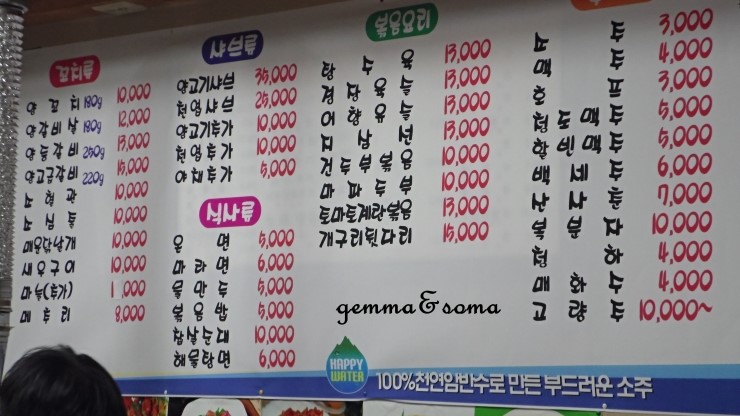 꼬치류
양 꼬 치 180g 10,000
양갈비살 180g 12,000
양등갈비 250g 13,000
양고급갈비 220g 15,000
소 혈 관 10,000
소 심 들 10,000
매운닭날개 10,000
새우구이 10,000
마늘(추가) 1,000
메 추 리 8,000
샤브류
양고기샤브 35,000
천엽샤브 25,000
양고기추가 10,000
천엽추가 10,000
야채추가 5,000
식사류
온 면 5,000
마 라 면 6,000
물 만 두 5,000
볶 음 밥 5,000
찹쌀순대 10,000
해물탕면 6,000
볶음요리
탕 수 육 13,000
경 장 육 슬 13,000
어 향 육 슬 13,000
지 삼 선 13,000
건 두 부 볶 음 10,000
마 파 두 부 10,000
토마토계란볶음 13,000
개구리뒷다리 15,000
소 주 3,000
맥 주 4,000
호 프 3,000
청 도 맥 주 5,000
할 빈 맥 주 5,000
백 세 주 6,000
산 사 춘 7,000
복 분 자 10,000
청 하 4,000
매 화 수 4,000
고 량 주 10,000~
gemma&soma
HAPPY WATER
100%천연암반수로 만든 부드러운 소주